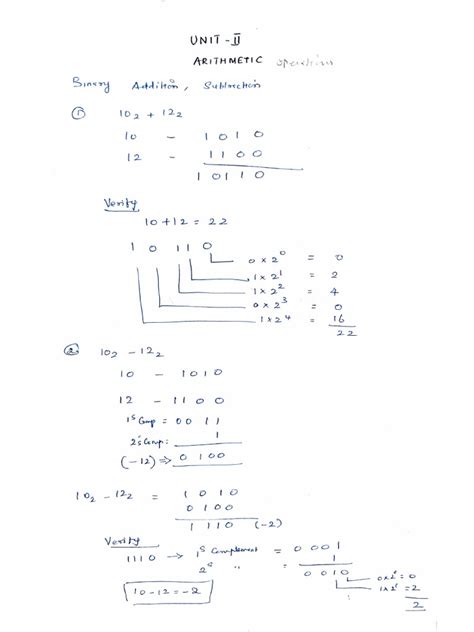 UNIT - II
ARITHMETIC operations
Binary Addition, Subtraction
① 10₂ + 12₂
10 - 1010
12 - 1100
10110
Verify
10 + 12 = 22
1 0 1 1 0
0 x 2⁰ = 0
1 x 2¹ = 2
1 x 2² = 4
0 x 2³ = 0
1 x 2⁴ = 16
22
② 10₂ - 12₂
10 - 1010
12 - 1100
1's Comp = 0011
2's Comp: 1
(-12) ⇒ 0100
10₂ - 12₂ = 1010
0100
1110 (-2)
Verify
1110 → 1's Complement = 0001
2's " = 1
0010
0x2⁰ = 0
1x2¹ = 2
2
10 - 12 = -2